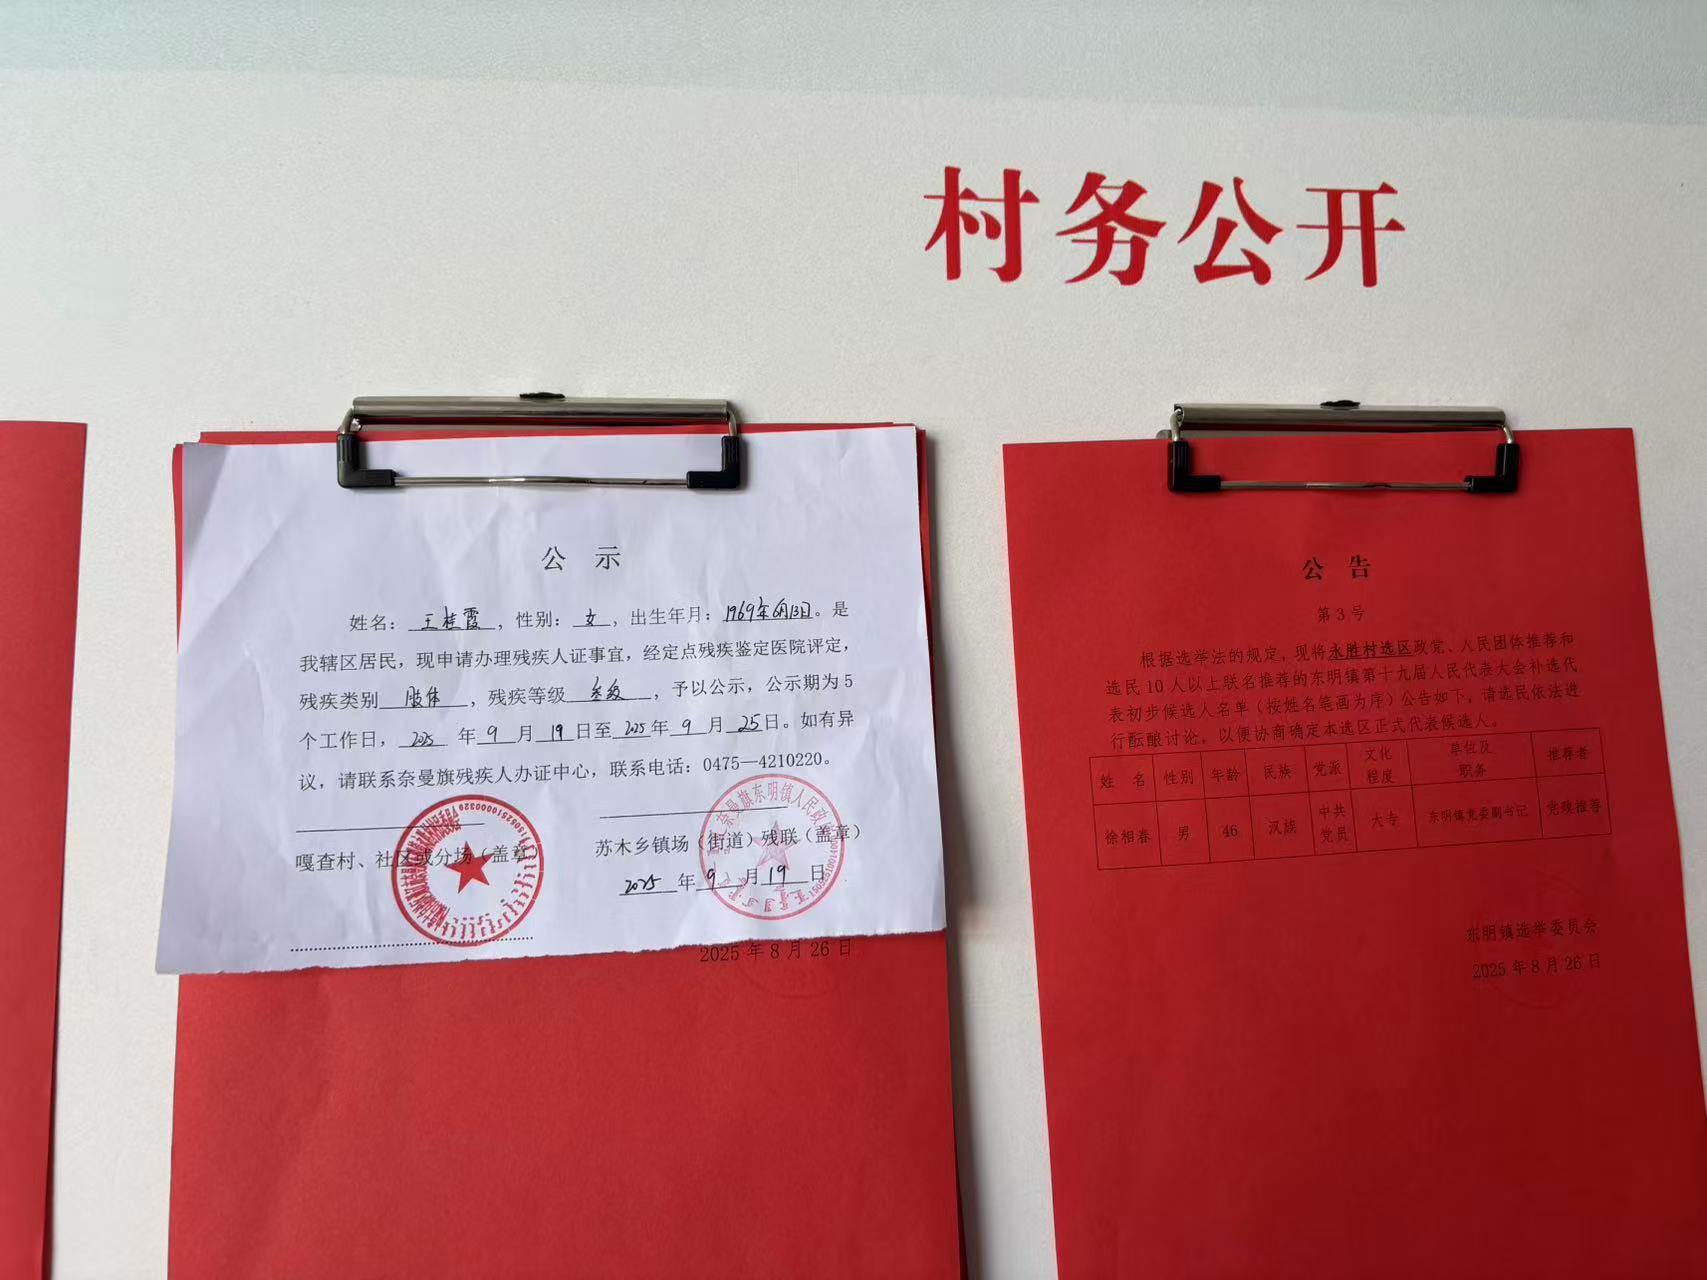 村务公开
公 示
姓名：王桂霞，性别：女，出生年月：1969年6月13日。是
我辖区居民，现申请办理残疾人证事宜，经定点残疾鉴定医院评定，
残疾类别 肢体 ，残疾等级 叁级 ，予以公示，公示期为5
个工作日，2025 年 9 月 19 日至 2025 年 9 月 25 日。如有异
议，请联系奈曼旗残疾人办证中心，联系电话：0475—4210220。
嘎查村、社区或分场（盖章）
苏木乡镇场（街道）残联（盖章）
2025 年 9 月 19 日
奈曼旗东明镇人民政府
2025 年 8 月 26 日
公 告
第 3 号
根据选举法的规定，现将永胜村选区政党、人民团体推荐和
选民 10 人以上联名推荐的东明镇第十九届人民代表大会补选代
表初步候选人名单（按姓名笔画为序）公告如下，请选民依法进
行酝酿讨论，以便协商确定本选区正式代表候选人。
姓 名 性别 年龄 民族 党派 文化程度 单位及职务 推荐者
徐相春 男 46 汉族 中共党员 大专 东明镇党委副书记 党政推荐
东明镇选举委员会
2025 年 8 月 26 日